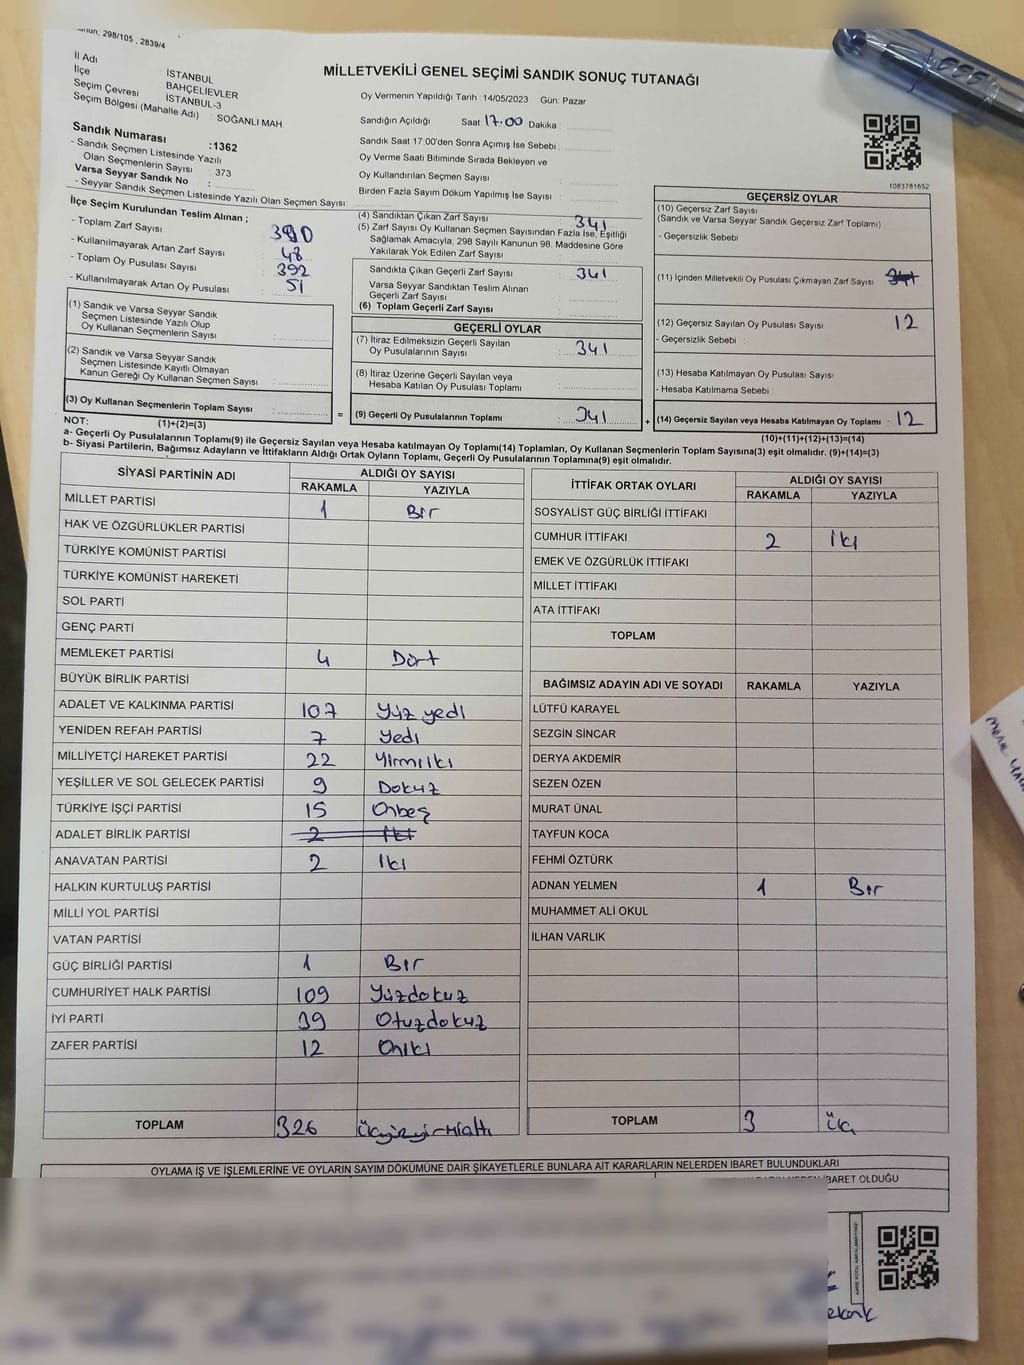 298/105 , 2839/4
MİLLETVEKİLİ GENEL SEÇİMİ SANDIK SONUÇ TUTANAĞI
İl Adı : İSTANBUL
İlçe : BAHÇELİEVLER
Seçim Çevresi : İSTANBUL-3
Seçim Bölgesi (Mahalle Adı) : SOĞANLI MAH
Sandık Numarası :1362
- Sandık Seçmen Listesinde Yazılı
Olan Seçmenlerin Sayısı : 373
Varsa Seyyar Sandık No :
- Seyyar Sandık Seçmen Listesinde Yazılı Olan Seçmen Sayısı:
Oy Vermenin Yapıldığı Tarih :14/05/2023 Gün: Pazar
Sandığın Açıldığı Saat 17.00 Dakika :
Sandık Saat 17:00'den Sonra Açımış İse Sebebi :
Oy Verme Saati Bitiminde Sırada Bekleyen ve
Oy Kullandırılan Seçmen Sayısı :
Birden Fazla Sayım Döküm Yapılmış İse Sayısı :
1083781652
İlçe Seçim Kurulundan Teslim Alınan ;
- Toplam Zarf Sayısı : 390
- Kullanılmayarak Artan Zarf Sayısı : 48
- Toplam Oy Pusulası Sayısı : 392
- Kullanılmayarak Artan Oy Pusulası : 51
(1) Sandık ve Varsa Seyyar Sandık
Seçmen Listesinde Yazılı Olup
Oy Kullanan Seçmenlerin Sayısı :
(2) Sandık ve Varsa Seyyar Sandık
Seçmen Listesinde Kayıtlı Olmayan
Kanun Gereği Oy Kullanan Seçmen Sayısı :
(3) Oy Kullanan Seçmenlerin Toplam Sayısı :
(1)+(2)=(3)
(4) Sandıktan Çıkan Zarf Sayısı : 341
(5) Zarf Sayısı Oy Kullanan Seçmen Sayısından Fazla İse, Eşitliği
Sağlamak Amacıyla, 298 Sayılı Kanunun 98. Maddesine Göre
Yakılarak Yok Edilen Zarf Sayısı :
Sandıkta Çıkan Geçerli Zarf Sayısı : 341
Varsa Seyyar Sandıktan Teslim Alınan
Geçerli Zarf Sayısı :
(6) Toplam Geçerli Zarf Sayısı :
GEÇERLİ OYLAR
(7) İtiraz Edilmeksizin Geçerli Sayılan
Oy Pusulalarının Sayısı : 341
(8) İtiraz Üzerine Geçerli Sayılan veya
Hesaba Katılan Oy Pusulası Toplamı :
= (9) Geçerli Oy Pusulalarının Toplamı : 341 +
GEÇERSİZ OYLAR
(10) Geçersiz Zarf Sayısı
(Sandık ve Varsa Seyyar Sandık Geçersiz Zarf Toplamı) :
- Geçersizlik Sebebi :
(11) İçinden Milletvekili Oy Pusulası Çıkmayan Zarf Sayısı : 341
(12) Geçersiz Sayılan Oy Pusulası Sayısı : 12
- Geçersizlik Sebebi :
(13) Hesaba Katılmayan Oy Pusulası Sayısı :
- Hesaba Katılmama Sebebi :
(14) Geçersiz Sayılan veya Hesaba Katılmayan Oy Toplamı : 12
(10)+(11)+(12)+(13)=(14)
NOT:
a- Geçerli Oy Pusulalarının Toplamı(9) ile Geçersiz Sayılan veya Hesaba katılmayan Oy Toplamı(14) Toplamları, Oy Kullanan Seçmenlerin Toplam Sayısına(3) eşit olmalıdır. (9)+(14)=(3)
b- Siyasi Partilerin, Bağımsız Adayların ve İttifakların Aldığı Ortak Oyların Toplamı, Geçerli Oy Pusulalarının Toplamına(9) eşit olmalıdır.
SİYASİ PARTİNİN ADI ALDIĞI OY SAYISI
RAKAMLA YAZIYLA
MİLLET PARTİSİ 1 Bir
HAK VE ÖZGÜRLÜKLER PARTİSİ
TÜRKİYE KOMÜNİST PARTİSİ
TÜRKİYE KOMÜNİST HAREKETİ
SOL PARTİ
GENÇ PARTİ
MEMLEKET PARTİSİ 4 Dört
BÜYÜK BİRLİK PARTİSİ
ADALET VE KALKINMA PARTİSİ 107 Yüz yedi
YENİDEN REFAH PARTİSİ 7 Yedi
MİLLİYETÇİ HAREKET PARTİSİ 22 Yirmiiki
YEŞİLLER VE SOL GELECEK PARTİSİ 9 Dokuz
TÜRKİYE İŞÇİ PARTİSİ 15 Onbeş
ADALET BİRLİK PARTİSİ 2 İki
ANAVATAN PARTİSİ 2 İki
HALKIN KURTULUŞ PARTİSİ
MİLLİ YOL PARTİSİ
VATAN PARTİSİ
GÜÇ BİRLİĞİ PARTİSİ 1 Bir
CUMHURİYET HALK PARTİSİ 109 Yüzdokuz
İYİ PARTİ 39 Otuzdokuz
ZAFER PARTİSİ 12 Oniki
TOPLAM 326 Üçyüzyirmialtı
İTTİFAK ORTAK OYLARI ALDIĞI OY SAYISI
RAKAMLA YAZIYLA
SOSYALİST GÜÇ BİRLİĞİ İTTİFAKI
CUMHUR İTTİFAKI 2 İki
EMEK VE ÖZGÜRLÜK İTTİFAKI
MİLLET İTTİFAKI
ATA İTTİFAKI
TOPLAM
BAĞIMSIZ ADAYIN ADI VE SOYADI RAKAMLA YAZIYLA
LÜTFÜ KARAYEL
SEZGİN SİNCAR
DERYA AKDEMİR
SEZEN ÖZEN
MURAT ÜNAL
TAYFUN KOCA
FEHMİ ÖZTÜRK
ADNAN YELMEN 1 Bir
MUHAMMET ALİ OKUL
İLHAN VARLIK
TOPLAM 3 Üç
OYLAMA İŞ VE İŞLEMLERİNE VE OYLARIN SAYIM DÖKÜMÜNE DAİR ŞİKAYETLERLE BUNLARA AİT KARARLARIN NELERDEN İBARET BULUNDUKLARI
İBARET OLDUĞU